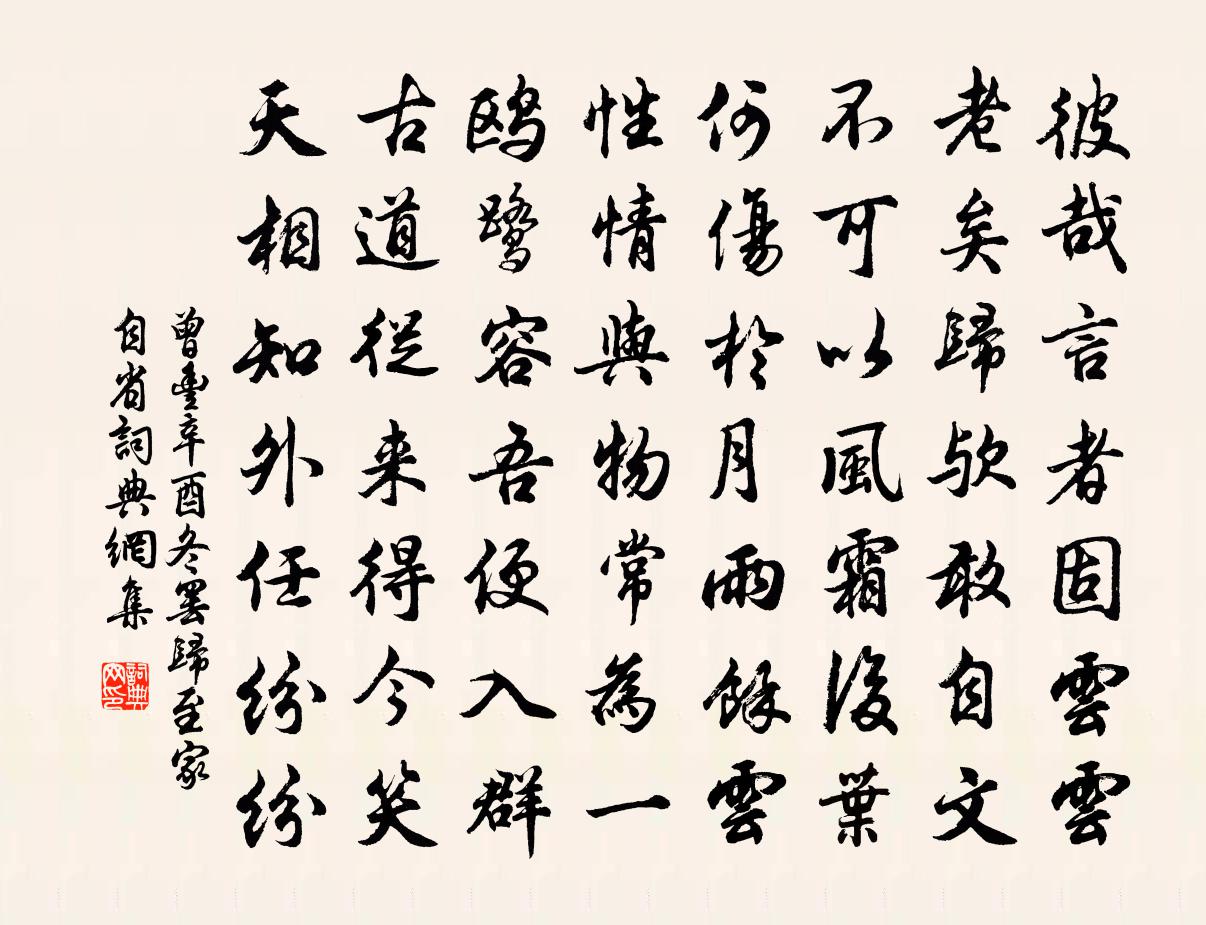 彼哉言者固雲雲
老矣歸歟敢自文
不可以風霜後葉
何傷於月雨餘雲
性情與物常為一
鷗鷺容吾便入群
古道從来得今笑
天相知外任紛紛
曾豐辛酉冬罢歸至家
自省詞典網集
詞典网印